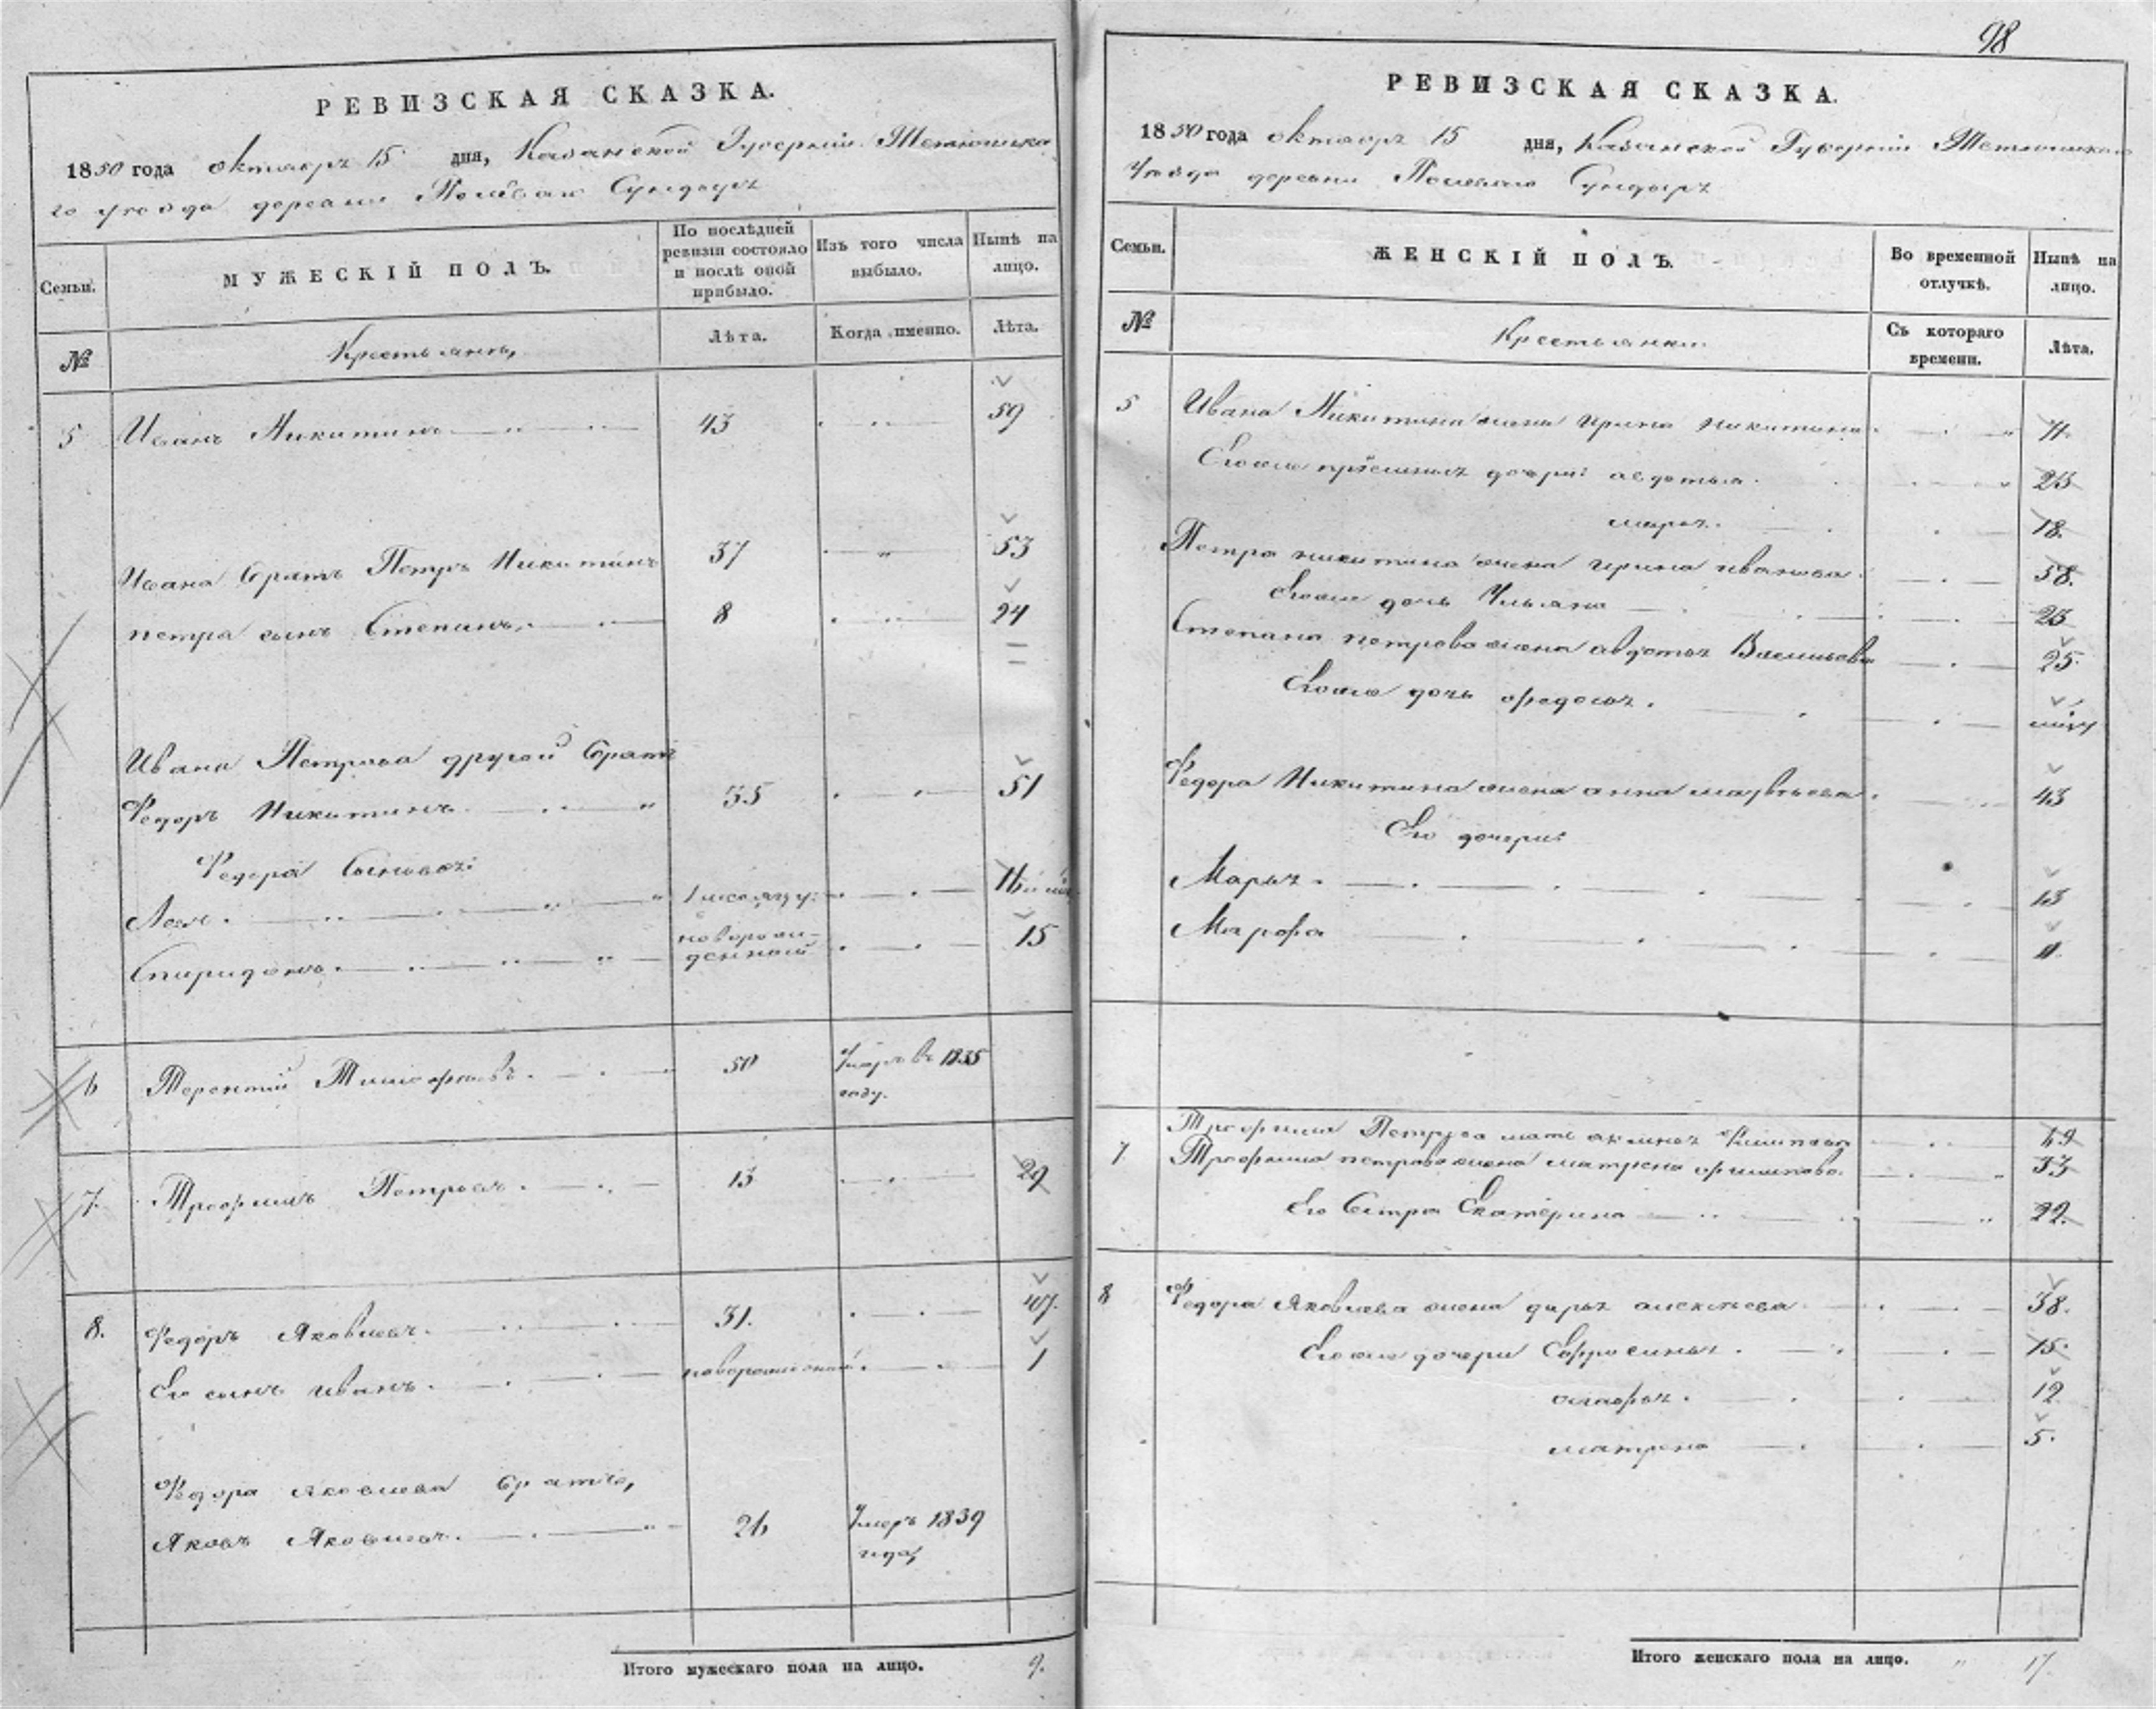 98
РЕВИЗСКАЯ СКАЗКА.
1850 года октября 15 дня, Казанской Губерніи Тетюшска
го уезда деревни Сундырь
Семьи.
МУЖЕСКІЙ ПОЛЪ.
По послѣдней ревизіи состояло и послѣ оной прибыло.
Изъ того числа выбыло.
Нынѣ на лицо.
№
Крестьяне,
Лѣта.
Когда именно.
Лѣта.
5 Иванъ Никитинъ 43 59
Ивана братъ Петръ Никитинъ 37 53
петра сынъ Степанъ 8 24
Ивана Петрова другой братъ
Федоръ Никитинъ 35 51
Федора сыновья:
1 месяцу
Спиридонъ новорож-
денный 15
6 Терентий 50 Умеръ въ 1835
году.
7. Трофимъ Петровъ 13 29
8. Федоръ Яковлевъ 31. 47.
Его сынъ иванъ новорожденный 1
Федора яковлева братъ,
Яковъ Яковлевъ 26 Умеръ 1839
года
Итого мужескаго пола на лицо. 9.
РЕВИЗСКАЯ СКАЗКА.
1850 года октября 15 дня, Казанской Губерніи Тетюшскаго
Уезда деревни Сундырь
Семьи.
ЖЕНСКІЙ ПОЛЪ.
Во временной отлучкѣ.
Нынѣ на лицо.
№
Крестьянки
Съ котораго времени.
Лѣта.
5 Ивана Никитина жена ирина никитина
Его же дочери: авдотья 25
марья 18.
Петра никитина жена ирина иванова 58.
Его же дочь Ульяна 23
Степана петрова жена авдотья Васильева 25.
Его же дочь федосья.
Федора Никитина жена анна матвеева 43
Его дочери:
Марья 13
Марфа 11.
7 Трофима Петрова мать
Трофима петрова жена матрена 33
Его Сестра Екатерина 22.
8 Федора Яковлева жена дарья алексеева 38.
Его же дочери Ефросинья 15.
12
матрена 5.
Итого женскаго пола на лицо. 17.